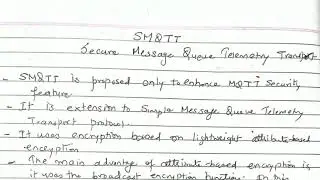 SMQTT
Secure Message Queue Telemetry Transport
- SMQTT is proposed only to enhance MQTT Security
feature
- It is extension to Simple Message Queue Telemetry
Transport protocol.
- It uses encryption based on lightweight attribute-based
encryption
- The main advantage of attribute-based encryption is
it was the broadcast encryption function. In this